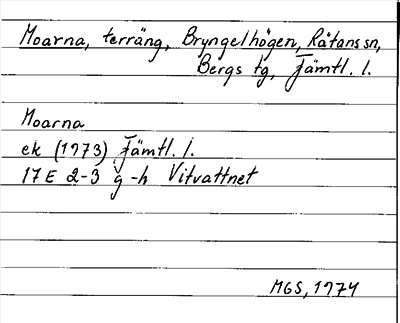 Moarna, terräng, Bryngelhögen, Råtans sn,
Bergs tg, Jämtl. l.
Moarna
ek (1973) Jämtl. l.
17 E 2-3 g-h Vitvattnet
MGS, 1974